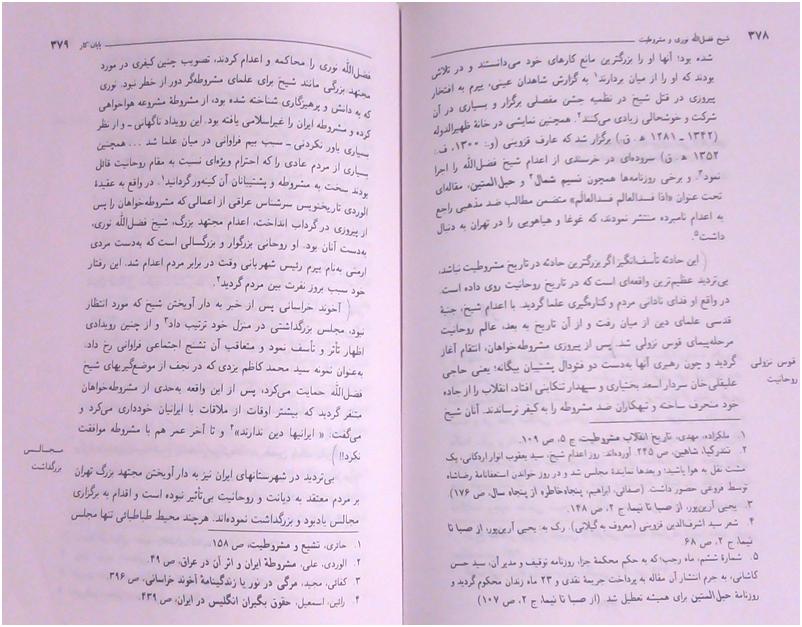 ۳۷۸
شیخ فضل‌الله نوری و مشروطیت
شده بود؛ آنها او را بزرگترین مانع کارهای خود می‌دانستند و در تلاش
بودند که او را از میان بردارند.۱ به گزارش شاهدان عینی، یپرم به افتخار
پیروزی در قتل شیخ در نظمیه جشن مفصلی برگزار و بسیاری در آن
شرکت و خوشحالی زیادی می‌کنند.۲ همچنین نمایشی در خانهٔ ظهیرالدوله
(۱۳۴۲ ـ ۱۲۸۱ ه‍. ق.) برگزار شد که عارف قزوینی (و.: ۱۳۰۰، ف.:
۱۳۵۲ ه‍. ق) سروده‌ای در خرسندی از اعدام شیخ فضل‌الله را اجرا
نمود.۳ و برخی روزنامه‌ها همچون نسیم شمال۴ و حبل‌المتین، مقاله‌ای
تحت عنوان «اذا فسدالعالِم فسدالعالَم» متضمن مطالب ضد مذهبی راجع
به اعدام نامبرده منتشر نمودند، که غوغا و هیاهویی را در تهران به دنبال
داشت.۵
(این حادثه تأسف‌انگیز اگر بزرگترین حادثه در تاریخ مشروطیت نباشد،
بی‌تردید عظیم‌ترین واقعه‌ای است که در تاریخ روحانیت روی داده است.
در واقع او فدای نادانی مردم و کناره‌گیری علما گردید. با اعدام شیخ، جنبهٔ
قدسی علمای دین از میان رفت و از آن تاریخ به بعد، عالم روحانیت
مرحله‌پیمای قوس نزولی شد. پس از پیروزی مشروطه‌خواهان، انتقام آغاز
گردید و چون رهبری آنها به‌دست دو فئودال پشتیبان بیگانه؛ یعنی حاجی
علیقلی‌خان سردار اسعد بختیاری و سپهدار تنکابنی افتاد، انقلاب را از جاده
خود منحرف ساخته و تبهکاران ضد مشروطه را به کیفر نرساندند. آنان شیخ
قوس نزولی
روحانیت
۱. ملکزاده، مهدی، تاریخ انقلاب مشروطیت ج ۵، ص ۱۰۹.
۲. تندرکیا، شاهین، ص ۲۴۵. آورده‌اند: روز اعدام شیخ، سید یعقوب انوار اردکانی، یک
مشت نقل به هوا پاشید؛ و بعدها نمایندهٔ مجلس شد و در روز خواندن استعفانامهٔ رضاشاه
توسط فروغی حضور داشت. (صفائی، ابراهیم، پنجاه‌خاطره از پنجاه سال، ص ۱۷۶)
۳. یحیی آرین‌پور، از صبا تا نیما، ج ۲، ص ۱۴۸.
۴. شعر سید اشرف‌الدین قزوینی (معروف به گیلانی). رک به: یحیی آرین‌پور، از صبا تا
نیما، ج ۲، ص ۶۸.
۵. شمارهٔ ششم، ماه رجب؛ که به حکم محکمهٔ جزا، روزنامه توقیف و مدیر آن، سید حسن
کاشانی، به جرم انتشار آن مقاله به پرداخت جریمهٔ نقدی و ۲۳ ماه زندان محکوم گردید و
روزنامهٔ حبل‌المتین برای همیشه تعطیل شد. (از صبا تا نیما، ج ۲، ص ۱۰۷)
پایان کار
۳۷۹
فضل‌الله نوری را محاکمه و اعدام کردند، تصویب چنین کیفری در مورد
مجتهد بزرگی مانند شیخ برای علمای مشروطه‌گر دور از خطر نبود. نوری
که به دانش و پرهیزگاری شناخته شده بود، از مشروطهٔ مشروعه هواخواهی
کرده و مشروطه ایران را غیراسلامی یافته بود. این رویداد ناگهانی ـ و از نظر
بسیاری باور نکردنی ـ سبب بیم فراوانی در میان علما شد ... همچنین
بسیاری از مردم عادی را که احترام ویژه‌ای نسبت به مقام روحانیت قائل
بودند سخت به مشروطه و پشتیبانان آن کینه‌ور گردانید.۱ در واقع به عقیدهٔ
الوردی تاریخنویس سرشناس عراقی از اعمالی که مشروطه‌خواهان را پس
از پیروزی در گرداب انداخت، اعدام مجتهد بزرگ، شیخ فضل‌الله نوری،
به‌دست آنان بود. او روحانی بزرگوار و بزرگسالی است که به‌دست مردی
ارمنی به‌نام یپرم رئیس شهربانی وقت در برابر مردم اعدام شد. این رفتار
خود سبب بروز نفرت بین مردم گردید.۲
(آخوند خراسانی پس از خبر به دار آویختن شیخ که مورد انتظار
نبود، مجلس بزرگداشتی در منزل خود ترتیب داد۳ و از چنین رویدادی
اظهار تأثر و تأسف نمود و متعاقب آن تشنج اجتماعی فراوانی رخ داد.
به‌عنوان نمونه سید محمد کاظم یزدی که در نجف از موضع‌گیریهای شیخ
فضل‌الله حمایت می‌کرد، پس از این واقعه به‌حدی از مشروطه‌خواهان
متنفر گردید که بیشتر اوقات از ملاقات با ایرانیان خودداری می‌کرد و
می‌گفت: « ایرانیها دین ندارند»۴ و تا آخر عمر هم با مشروطه موافقت
نکرد!!)
بی‌تردید در شهرستانهای ایران نیز به دار آویختن مجتهد بزرگ تهران
بر مردم معتقد به دیانت و روحانیت بی‌تأثیر نبوده است و اقدام به برگزاری
مجالس یادبود و بزرگداشت نموده‌اند. هرچند محیط طباطبائی تنها مجلس
مجالس
بزرگداشت
۱. حائری، تشیع و مشروطیت، ص ۱۵۸.
۲. الوردی، علی، مشروطهٔ ایران و اثر آن در عراق، ص ۴۹.
۳. کفائی، مجید، مرگی در نور یا زندگینامهٔ آخوند خراسانی، ص ۳۹۶.
۴. رائین، اسمعیل، حقوق بگیران انگلیس در ایران، ص ۴۳۹.